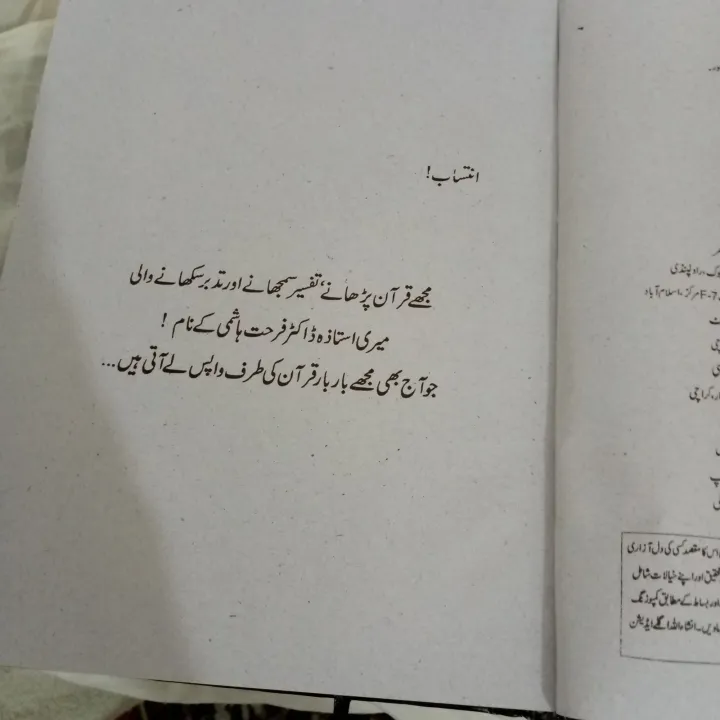 انتساب!
مجھے قرآن پڑھانے، تفسیر سمجھانے اور تدبر سکھانے والی
میری استاذہ ڈاکٹر فرحت ہاشمی کے نام !
جو آج بھی مجھے بار بار قرآن کی طرف واپس لے آتی ہیں...
ور۔
وک، راولپنڈی
F-7 مرکز، اسلام آباد
کراچی
اس کا مقصد کسی کی دل آزاری
تحقیق اور اپنے خیالات شامل
اور بساط کے مطابق کمپوزنگ
ویں۔ انشاء اللہ اگلے ایڈیشن